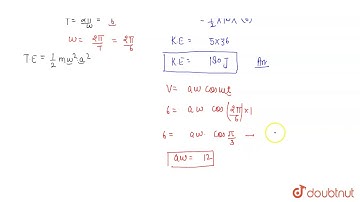 T = 2π/ω = 6
ω = 2π/T = 2π/6
TE = 1/2 mω²a²
K.E = 5×36
K.E = 180 J Ans
V = aω cosωt
6 = aω cos(2π/6)×1
6 = aω cos π/3 →
aω = 12
doubtnut